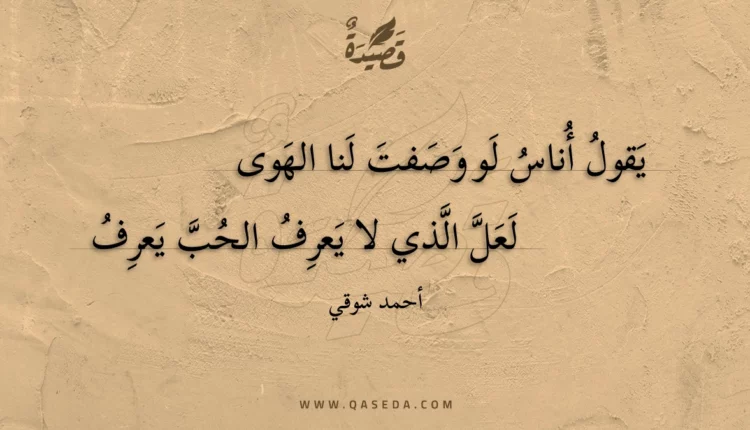 قَصِيدَةٌ
يَقولُ أُناسُ لَو وَصَفتَ لَنا الهَوى
لَعَلَّ الَّذي لا يَعرِفُ الحُبَّ يَعرِفُ
أحمد شوقي
WWW.QASEDA.COM